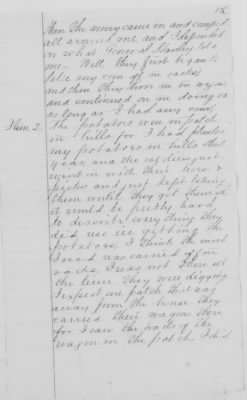 15
Then the army came in and camped
all around me, and I depended
on what General told
me - Well they first began to
take my corn off in sacks
and then they drove in in wagons
and continued on in doing so
as long as I had any corn
Item 2. The potatoes were in patch
in hills for I had planted
my potatoes in hills that
year and the soldiers just
went in with their hoes &
picks and just kept taking
them until they got them all
it would be pretty hard
to describe everything they
did use in getting the
potatoes, I think the most
I seed was carried off in
sacks, I was not there all
the time they were digging
I expect one patch that was
away from the house they
carried their wagons there
for I saw the tracks of the
wagon in the patch. I did